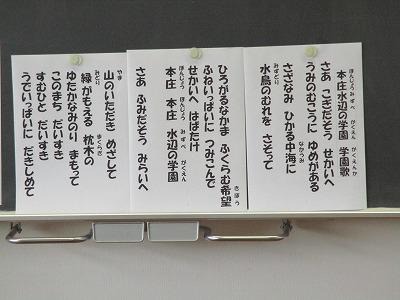 本庄水辺の学園　学園歌
さあ　こぎだそう　せかいへ
うみのむこうに　ゆめがある
さざなみ　ひかる中海に
水鳥のむれを　さそって
ひろがるなかま　ふくらむ希望
ふねいっぱいに　つみこんで
せかいへ　はばたけ
本庄　本庄　水辺の学園
さあ　ふみだそう　みらいへ
山のいただき　めざして
緑がもえる　枕木の
ゆたかなみのり　まもって
このまち　だいすき
すむひと　だいすき
うでいっぱいに　だきしめて